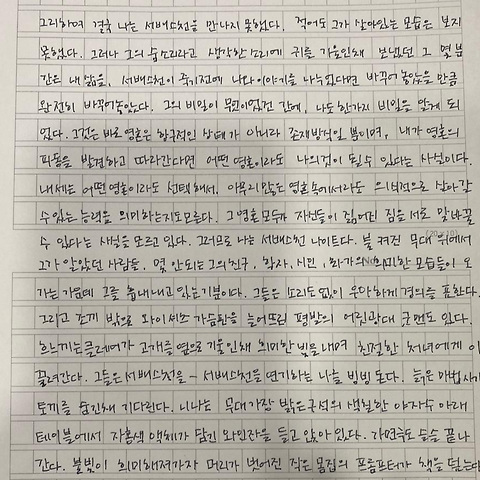 그리하여 결국 나는 서배스천을 만나지 못했다. 적어도 그가 살아있는 모습은 보지
못했다. 그러나 그의 숨소리라고 생각한 소리에 귀를 기울인채 보냈던 그 몇 분
간은 내 삶을, 서배스천이 죽기전에 나와 이야기를 나누었다면 바꾸어 놓았을 만큼
완전히 바꾸어놓았다. 그의 비밀이 무엇이었건 간에, 나도 한가지 비밀을 알게 되
었다. 그것은 바로 영혼은 항구적인 상태가 아니라 존재방식일 뿐이며, 내가 영혼의
파동을 발견하고 따라간다면 어떤 영혼이라도 나의것이 될수 있다는 사실이다.
내세는 어떤 영혼이라도 선택해서, 아무리 많은 영혼속에서라도 의식적으로 살아갈
수 있는 능력을 의미하는지도 모른다. 그 영혼 모두가 자신들이 짊어진 짐을 서로 맞바꿀
수 있다는 사실을 모르고 있다. 그러므로 나는 서배스천 나이트다. 불 켜진 무대 위에서
그가 알았던 사람들, 몇 안되는 그의 친구, 학자, 시인, 화가의 희미한 모습들이 오
가는 가운데 그를 흉내내고 있는 기분이다. 그들은 소리도 없이 우아하게 경의를 표한다.
그리고 조끼 밖으로 와이셔츠 가슴판을 늘어뜨린 평발의 어릿광대 굿맨도 있다.
흐느끼는 클레어가 고개를 옆으로 기울인채 희미한 빛을 내며 친절한 처녀에게 이
끌려간다. 그들은 서배스천을 – 서배스천을 연기하는 나를 빙빙 돈다. 늙은 마법사가
토끼를 숨긴채 기다린다. 니나는 무대가장 밝은 구석의 색칠한 야자수 아래
테이블에서 자홍색 액체가 담긴 와인잔을 들고 앉아 있다. 가면극도 슬슬 끝나
간다. 불빛이 희미해져가자 머리가 벗어진 작은 몸집의 프롬프터가 책을 덮는다